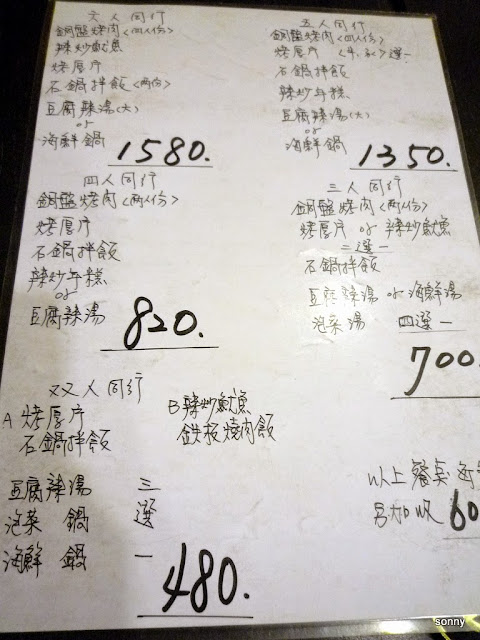 六人同行
銅盤烤肉〈四人份〉
辣炒魷魚
烤厚片
石鍋拌飯〈兩份〉
豆腐辣湯〈大〉
or
海鮮鍋 1580.
五人同行
銅盤烤肉〈四人份〉
烤厚片〈牛、豕〉選一
石鍋拌飯
辣炒年糕
豆腐辣湯〈大〉
or
海鮮鍋 1350.
四人同行
銅盤烤肉〈兩人份〉
烤厚片
石鍋拌飯
辣炒年糕
or
豆腐辣湯 820.
三人同行
銅盤烤肉〈兩人份〉
烤厚片 or 辣炒魷魚
二選一
石鍋拌飯
豆腐辣湯 or 海鮮湯
泡菜湯 四選一
700
双人同行
A 烤厚片
石鍋拌飯
B 辣炒魷魚
鉄板燒肉飯
豆腐辣湯 三
泡菜 鍋 選
海鮮 鍋 一
480.
以上餐桌每
另加收 60
sonny